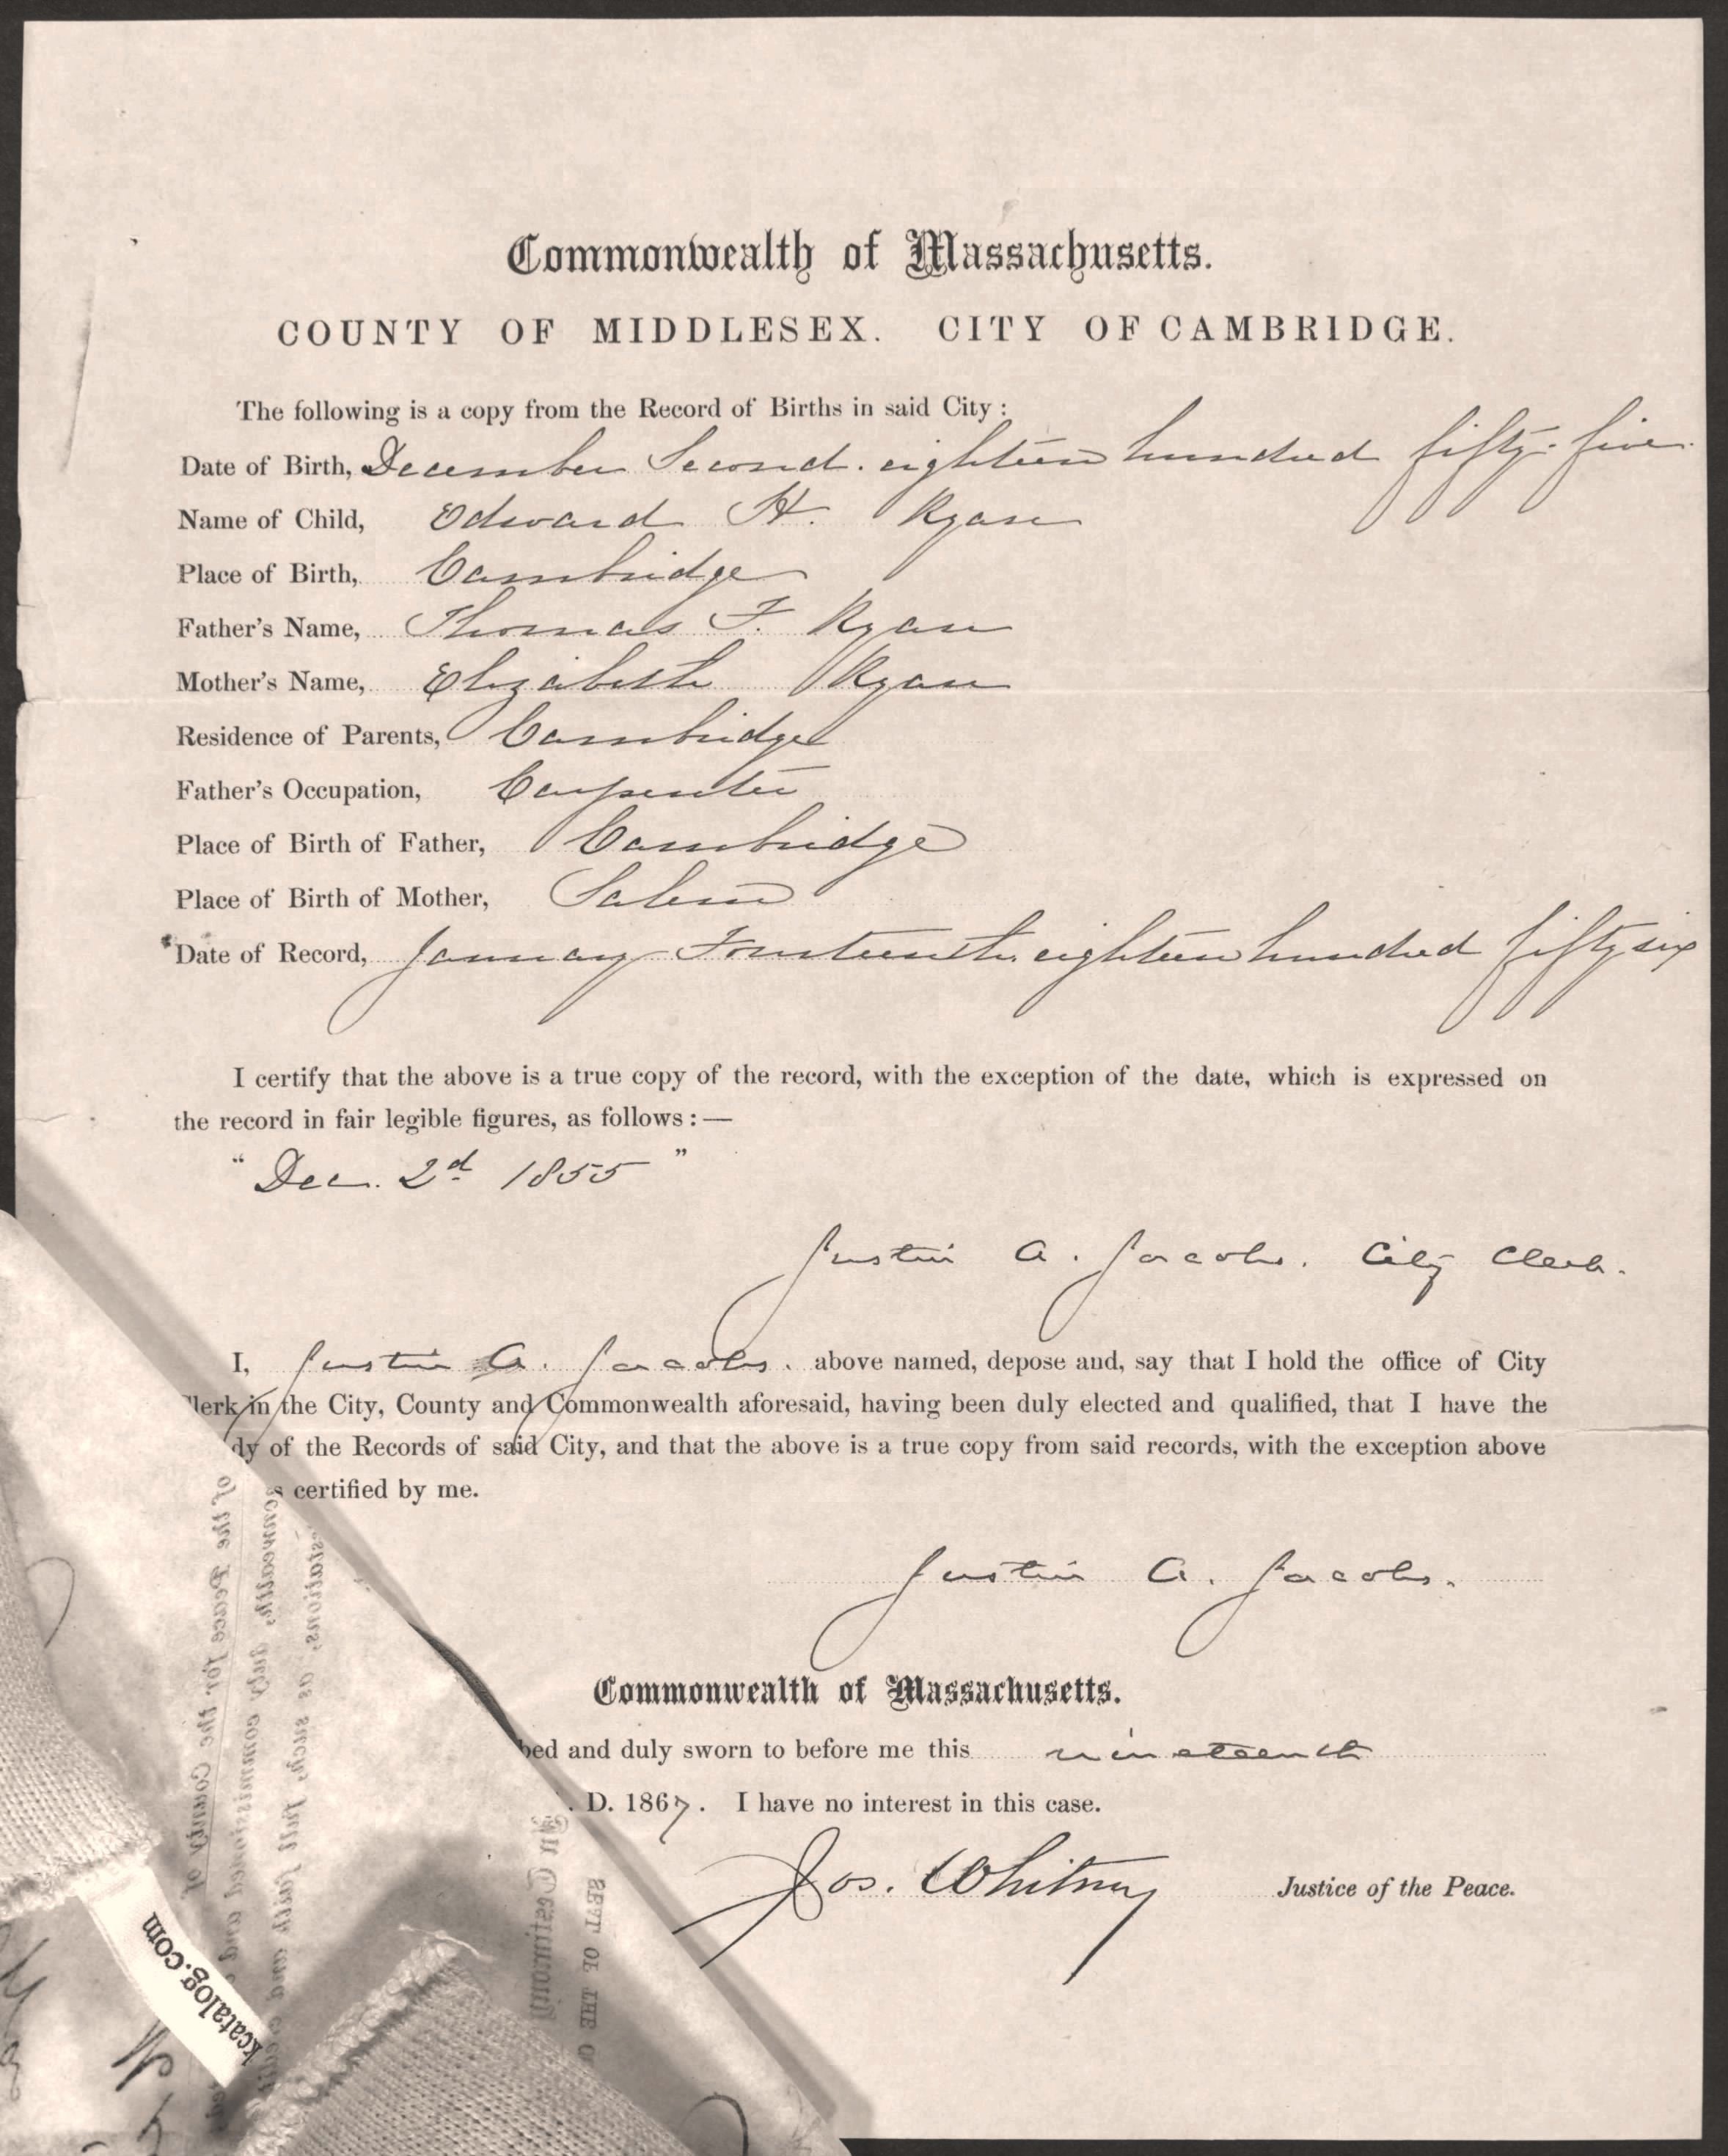 Commonwealth of Massachusetts.
COUNTY OF MIDDLESEX. CITY OF CAMBRIDGE.
The following is a copy from the Record of Births in said City:
Date of Birth, December Second. eighteen hundred fifty-five.
Name of Child, Edward H. Ryan
Place of Birth, Cambridge
Father's Name, Thomas F. Ryan
Mother's Name, Elizabeth Ryan
Residence of Parents, Cambridge
Father's Occupation, Carpenter
Place of Birth of Father, Cambridge
Place of Birth of Mother, Salem
Date of Record, January Fourteenth. eighteen hundred fifty six
I certify that the above is a true copy of the record, with the exception of the date, which is expressed on
the record in fair legible figures, as follows:—
"Dec. 2d 1855"
Justin A. Jacobs. City Clerk.
I, Justin A. Jacobs. above named, depose and, say that I hold the office of City
Clerk in the City, County and Commonwealth aforesaid, having been duly elected and qualified, that I have the
dy of the Records of said City, and that the above is a true copy from said records, with the exception above
s certified by me.
Justin A. Jacobs.
Commonwealth of Massachusetts.
bed and duly sworn to before me this nineteenth
. D. 1867. I have no interest in this case.
Jos. Whitney Justice of the Peace.
of the Peace for the County of
onwealth, duly commissioned and
stations, as such, full faith and
In Testimony
SEPT OF THE
kcatalog.com